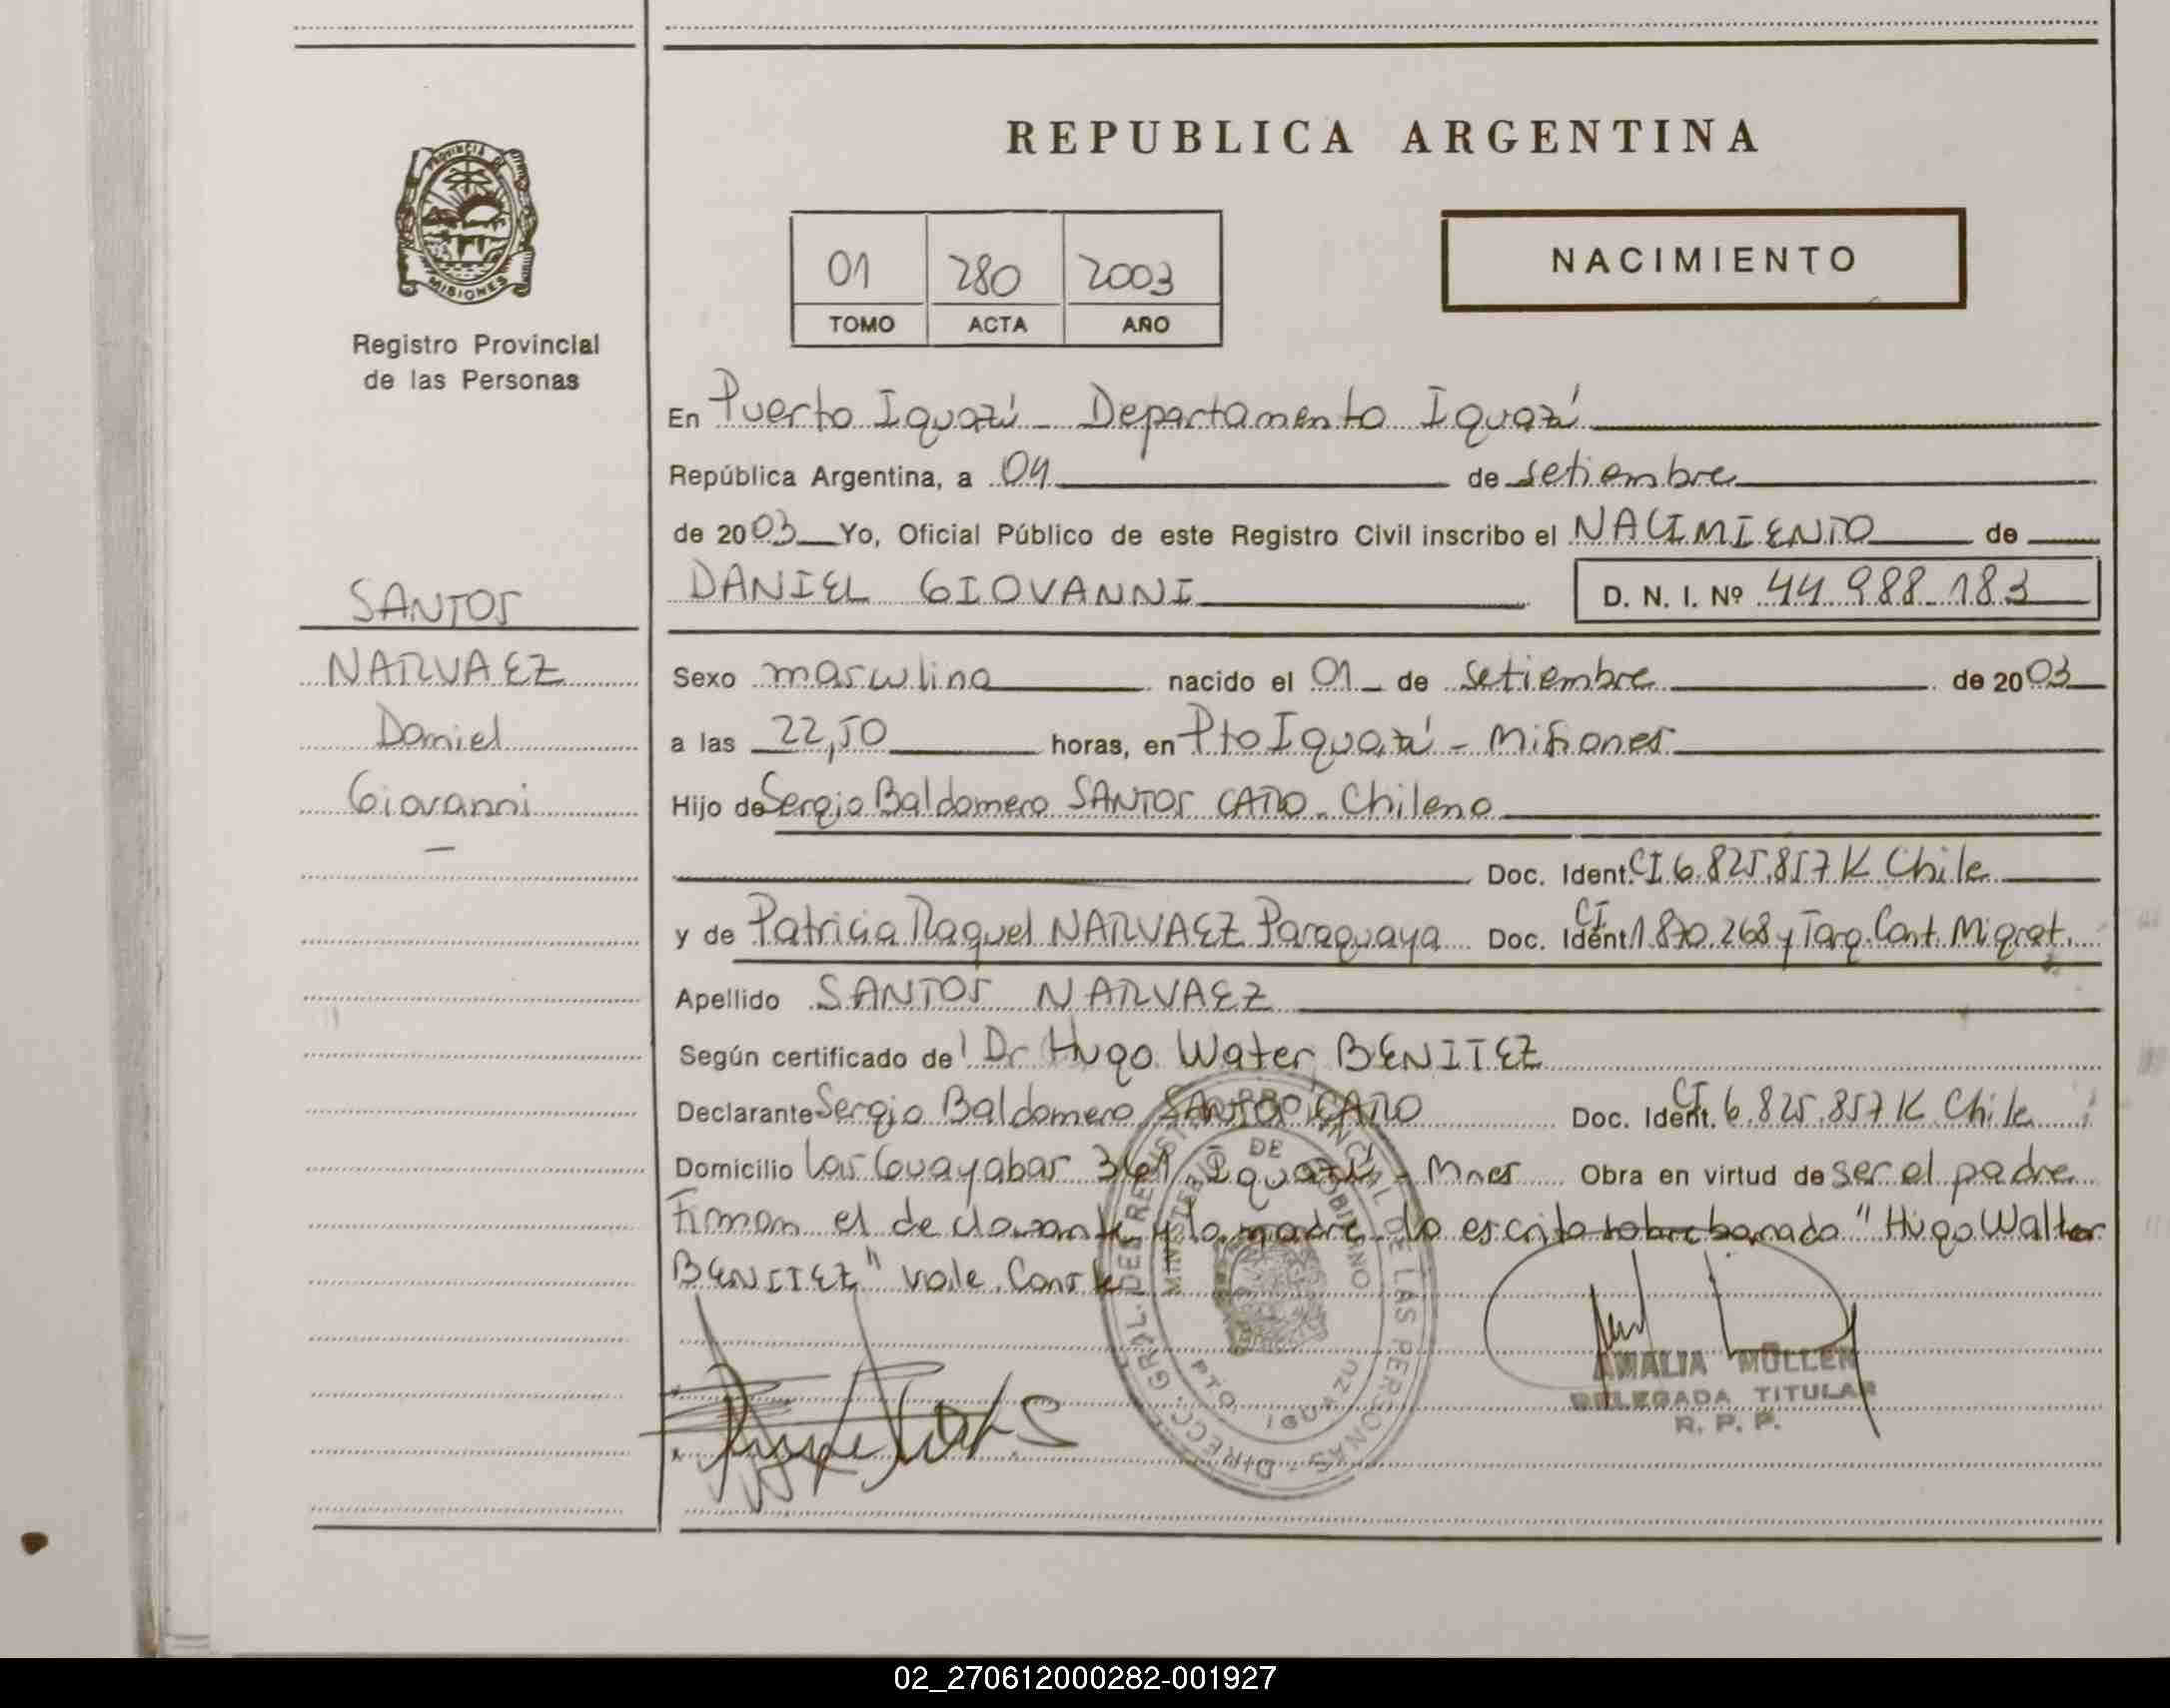 REPUBLICA ARGENTINA
PROVINCIA DE
MISIONES
Registro Provincial
de las Personas
01 280 2003
TOMO ACTA AÑO
NACIMIENTO
En Puerto Iguazú - Departamento Iguazú
República Argentina, a 04 de setiembre
de 2003 Yo, Oficial Público de este Registro Civil inscribo el NACIMIENTO de
DANIEL GIOVANNI D. N. I. Nº 44.988.183
SANTOS
NARVAEZ
Daniel
Giovanni
Sexo masculino nacido el 01 de setiembre de 2003
a las 22,50 horas, en Pto Iguazú - Misiones
Hijo de Sergio Baldomero SANTOS CARO - Chileno
Doc. Ident. CI 6.825.857 K Chile
y de Patricia Raquel NARVAEZ Paraguaya Doc. Ident CI 1.870.268 y Tarq. Cont. Migrat.
Apellido SANTOS NARVAEZ
Según certificado de Dr Hugo Water BENITEZ
Declarante Sergio Baldomero SANTOS CARO Doc. Ident. CI 6.825.857 K Chile
Domicilio Las Guayabas 361 Iguazú - Mnes Obra en virtud de ser el padre
Firman el declarante y la madre lo escrito sobre borrado "Hugo Walter
BENITEZ" vale. Conste
DIRECC. GRAL. DEL REGISTRO PROVINCIAL DE LAS PERSONAS
MINISTERIO DE GOBIERNO
PTO. IGUAZU
AMALIA MÜLLER
DELEGADA TITULAR
R. P. P.
02_270612000282-001927